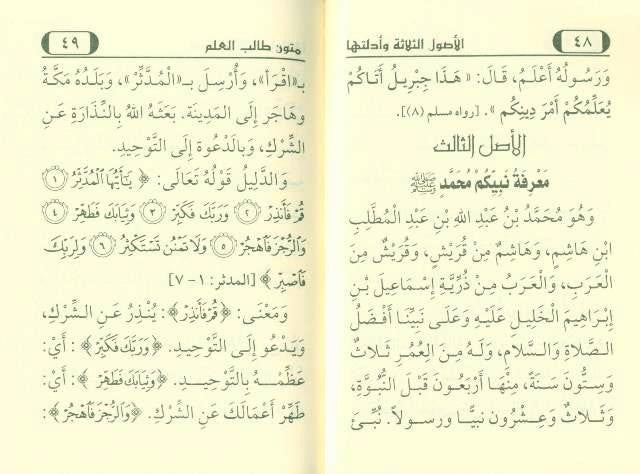 ٤٨
الأصول الثلاثة وأدلتها
وَرَسُولُهُ أَعْلَمُ، قَالَ: «هَذَا جِبْرِيلُ أَتَاكُمْ
يُعَلِّمُكُمْ أَمْرَ دِينِكُم». [رواه مسلم (٨)].
الأصل الثالث
مَعْرِفَةُ نَبِيِّكُم مُحَمَّدٍ ﷺ
وَهُوَ مُحَمَّدُ بْنُ عَبْدِ اللهِ بْنِ عَبْدِ الْمُطَّلِبِ
ابْنِ هَاشِمٍ، وَهَاشِمٌ مِنْ قُرَيْشٍ، وَقُرَيْشٌ مِنَ
الْعَرَبِ، وَالْعَرَبُ مِنْ ذُرِّيَّةِ إِسْمَاعِيلَ بْنِ
إِبْرَاهِيمَ الْخَلِيلِ عَلَيْهِ وَعَلَى نَبِيِّنَا أَفْضَلُ
الصَّلاةِ وَالسَّلامِ، وَلَهُ مِنَ الْعُمُرِ ثَلاثٌ
وَسِتُّونَ سَنَةً، مِنْهَا أَرْبَعُونَ قَبْلَ النُّبُوَّةِ،
وَثَلاثٌ وَعِشْرُونَ نبيًّا ورسولاً. نُبِّئَ
متون طالب العلم
٤٩
بـ«اقْرَأ»، وَأُرْسِلَ بـ«الْمُدَّثِّرْ»، وَبَلَدُهُ مَكَّةُ
وهَاجَر إِلَى الْمَدِينَةِ. بَعَثَهُ اللهُ بِالنِّذَارَةِ عَنِ
الشِّرْكِ، وَبِالدَّعْوَةِ إِلَى التَّوْحِيدِ.
وَالدَّلِيلُ قَوْلُهُ تَعَالَى: ﴿ يَٰٓأَيُّهَا ٱلْمُدَّثِّرُ ۝١
قُمْ فَأَنذِرْ ۝٢ وَرَبَّكَ فَكَبِّرْ ۝٣ وَثِيَابَكَ فَطَهِّرْ ۝٤
وَٱلرُّجْزَ فَٱهْجُرْ ۝٥ وَلَا تَمْنُن تَسْتَكْثِرُ ۝٦ وَلِرَبِّكَ
فَٱصْبِرْ ﴾ [المدثر: ١-٧]
وَمَعْنَى: ﴿قُمْ فَأَنذِرْ﴾: يُنْذِرُ عَنِ الشِّرْكِ،
وَيَدْعُو إِلَى التَّوْحِيدِ. ﴿وَرَبَّكَ فَكَبِّرْ﴾: أَيْ:
عَظِّمْهُ بِالتَّوْحِيدِ. ﴿وَثِيَابَكَ فَطَهِّرْ﴾: أَيْ:
طَهِّرْ أَعْمَالَكَ عَنِ الشِّرْكِ. ﴿وَٱلرُّجْزَ فَٱهْجُرْ﴾: